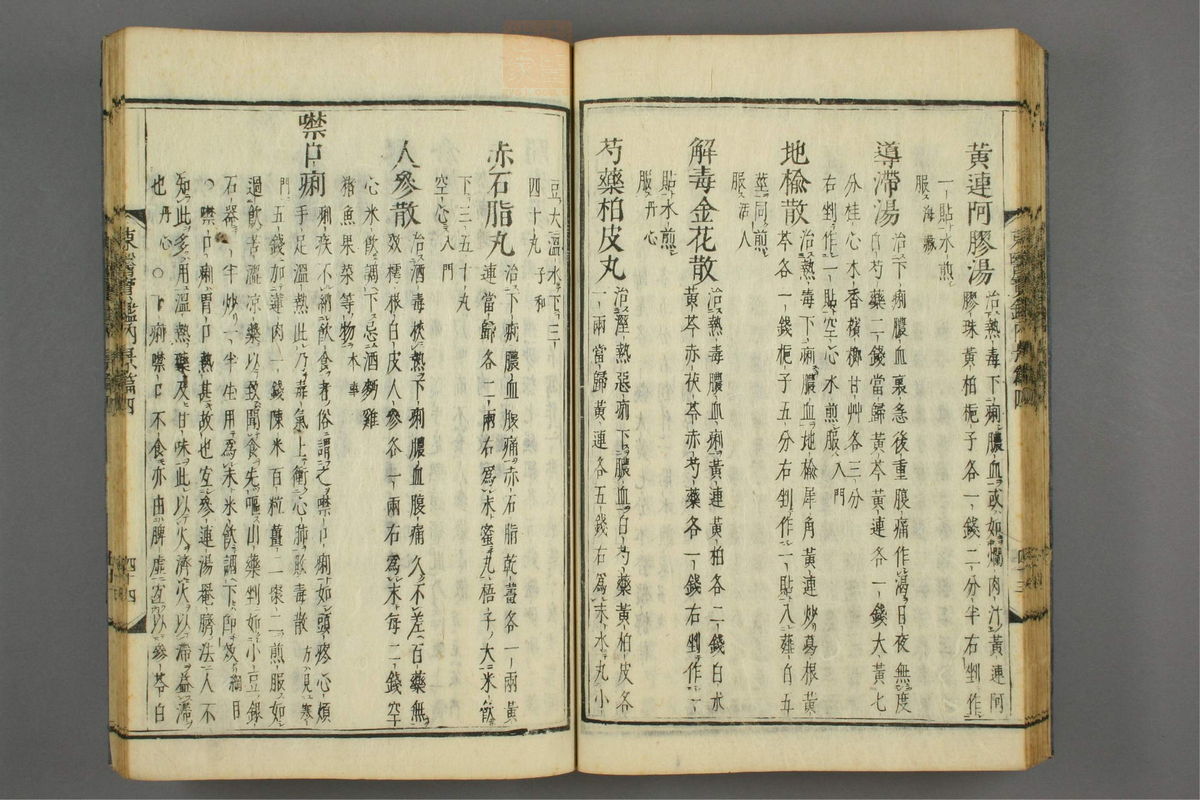 黃連阿膠湯 治熱毒下痢膿血或如爛肉汁黃連阿
膠珠黃柏梔子各一錢二分半右剉作
一貼水煎
服 海藏
導滯湯 治下痢膿血裏急後重腹痛作渴日夜無度
白芍藥二錢當歸黃芩黃連各一錢大黃七
分桂心木香檳榔甘艸各三分
右剉作一貼空心水煎服 入門
地楡散 治熱毒下痢膿血地楡犀角黃連炒葛根黃
芩各一錢梔子五分右剉作一貼入薤白五
莖同煎
服 活人
解毒金花散 治熱毒膿血痢黃連黃柏各二錢白朮
黃芩赤茯苓赤芍藥各一錢右剉作一
貼水煎
服 丹心
芍藥柏皮丸 治溼熱惡痢下膿血白芍藥黃柏皮各
一兩當歸黃連各五錢右爲末水丸小
豆大溫水下三
四十丸 子和
赤石脂丸 治下痢膿血腹痛赤石脂乾薑各一兩黃
連當歸各二兩右爲末蜜丸梧子大米飮
下三五十丸
空心 入門
人參散 治酒毒挾熱下痢膿血腹痛久不差百藥無
效樗根白皮人參各一兩右爲末每二錢空
心米飮調下忌酒麪雞
猪魚果菜等物 本事
噤口痢 痢疾不納飮食者俗謂之噤口痢如頭疼心煩
手足溫熱此乃毒氣上衝心肺敗毒散 方見寒
門 五錢加蓮肉一錢陳米百粒薑二棗二煎服如
過飮苦澁凉藥以致聞食先嘔山藥剉如小豆銀
石器一半炒一半生用爲末米飮調下卽效 綱目
○噤口痢胃口熱甚故也宜參連湯罨臍法人不
知此多用溫熱藥及甘味此以火濟火以滯益滯
也 丹心 ○下痢噤口不食亦由脾虛宜以參苓白
東醫寶鑑內景篇四
四十四